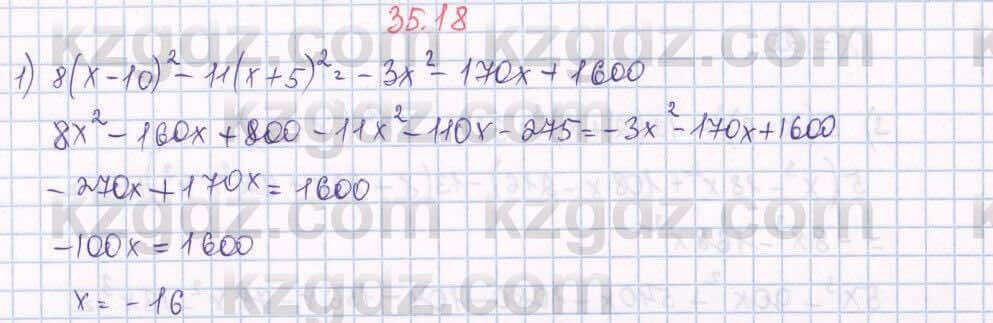 35.18
1) 8(x-10)² - 11(x+5)² = -3x² - 170x + 1600
8x² - 160x + 800 - 11x² - 110x - 275 = -3x² - 170x + 1600
-270x + 170x = 1600
-100x = 1600
x = -16
kzgdz.com kzgdz.com
kzgdz.com
kzgdz.com kzgdz.com
kzgdz.com